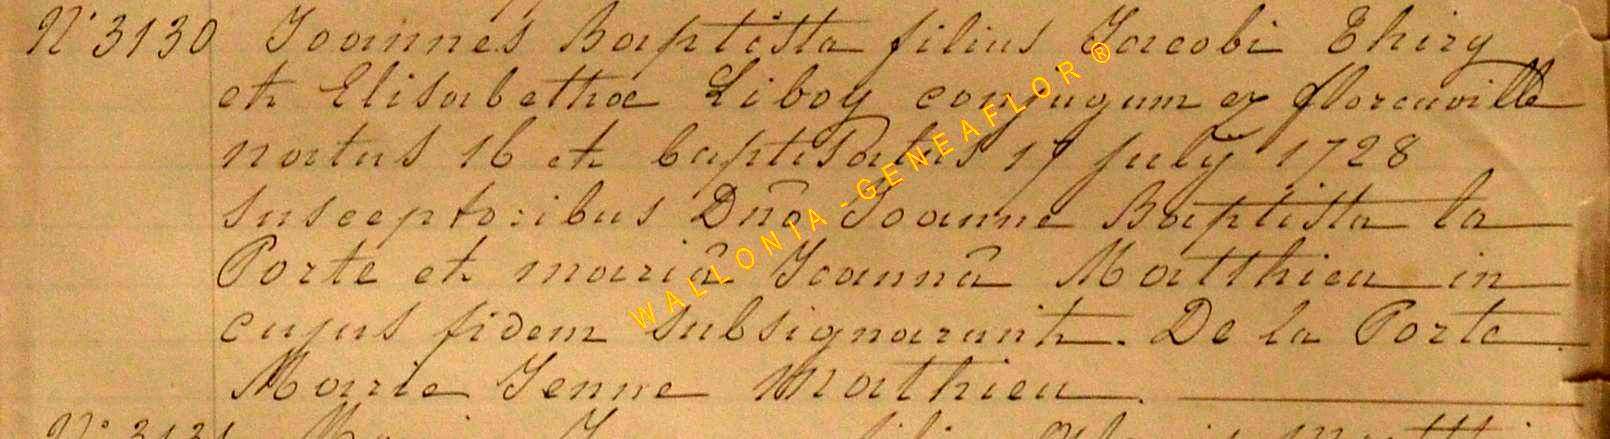 N° 3130 Joannes Baptista filius Jacobi Thiry
et Elisabethæ Liboy conjugum ex florenville
natus 16 et baptisatus 17 july 1728
susceptoribus Dnô Joanne Baptista la
Porte et mariâ Joannâ Matthieu in
cujus fidem subsignarunt. De la Porte
Marie Jenne Mathieu.
N° 3131
WALLONIA-GENEAFLOR®